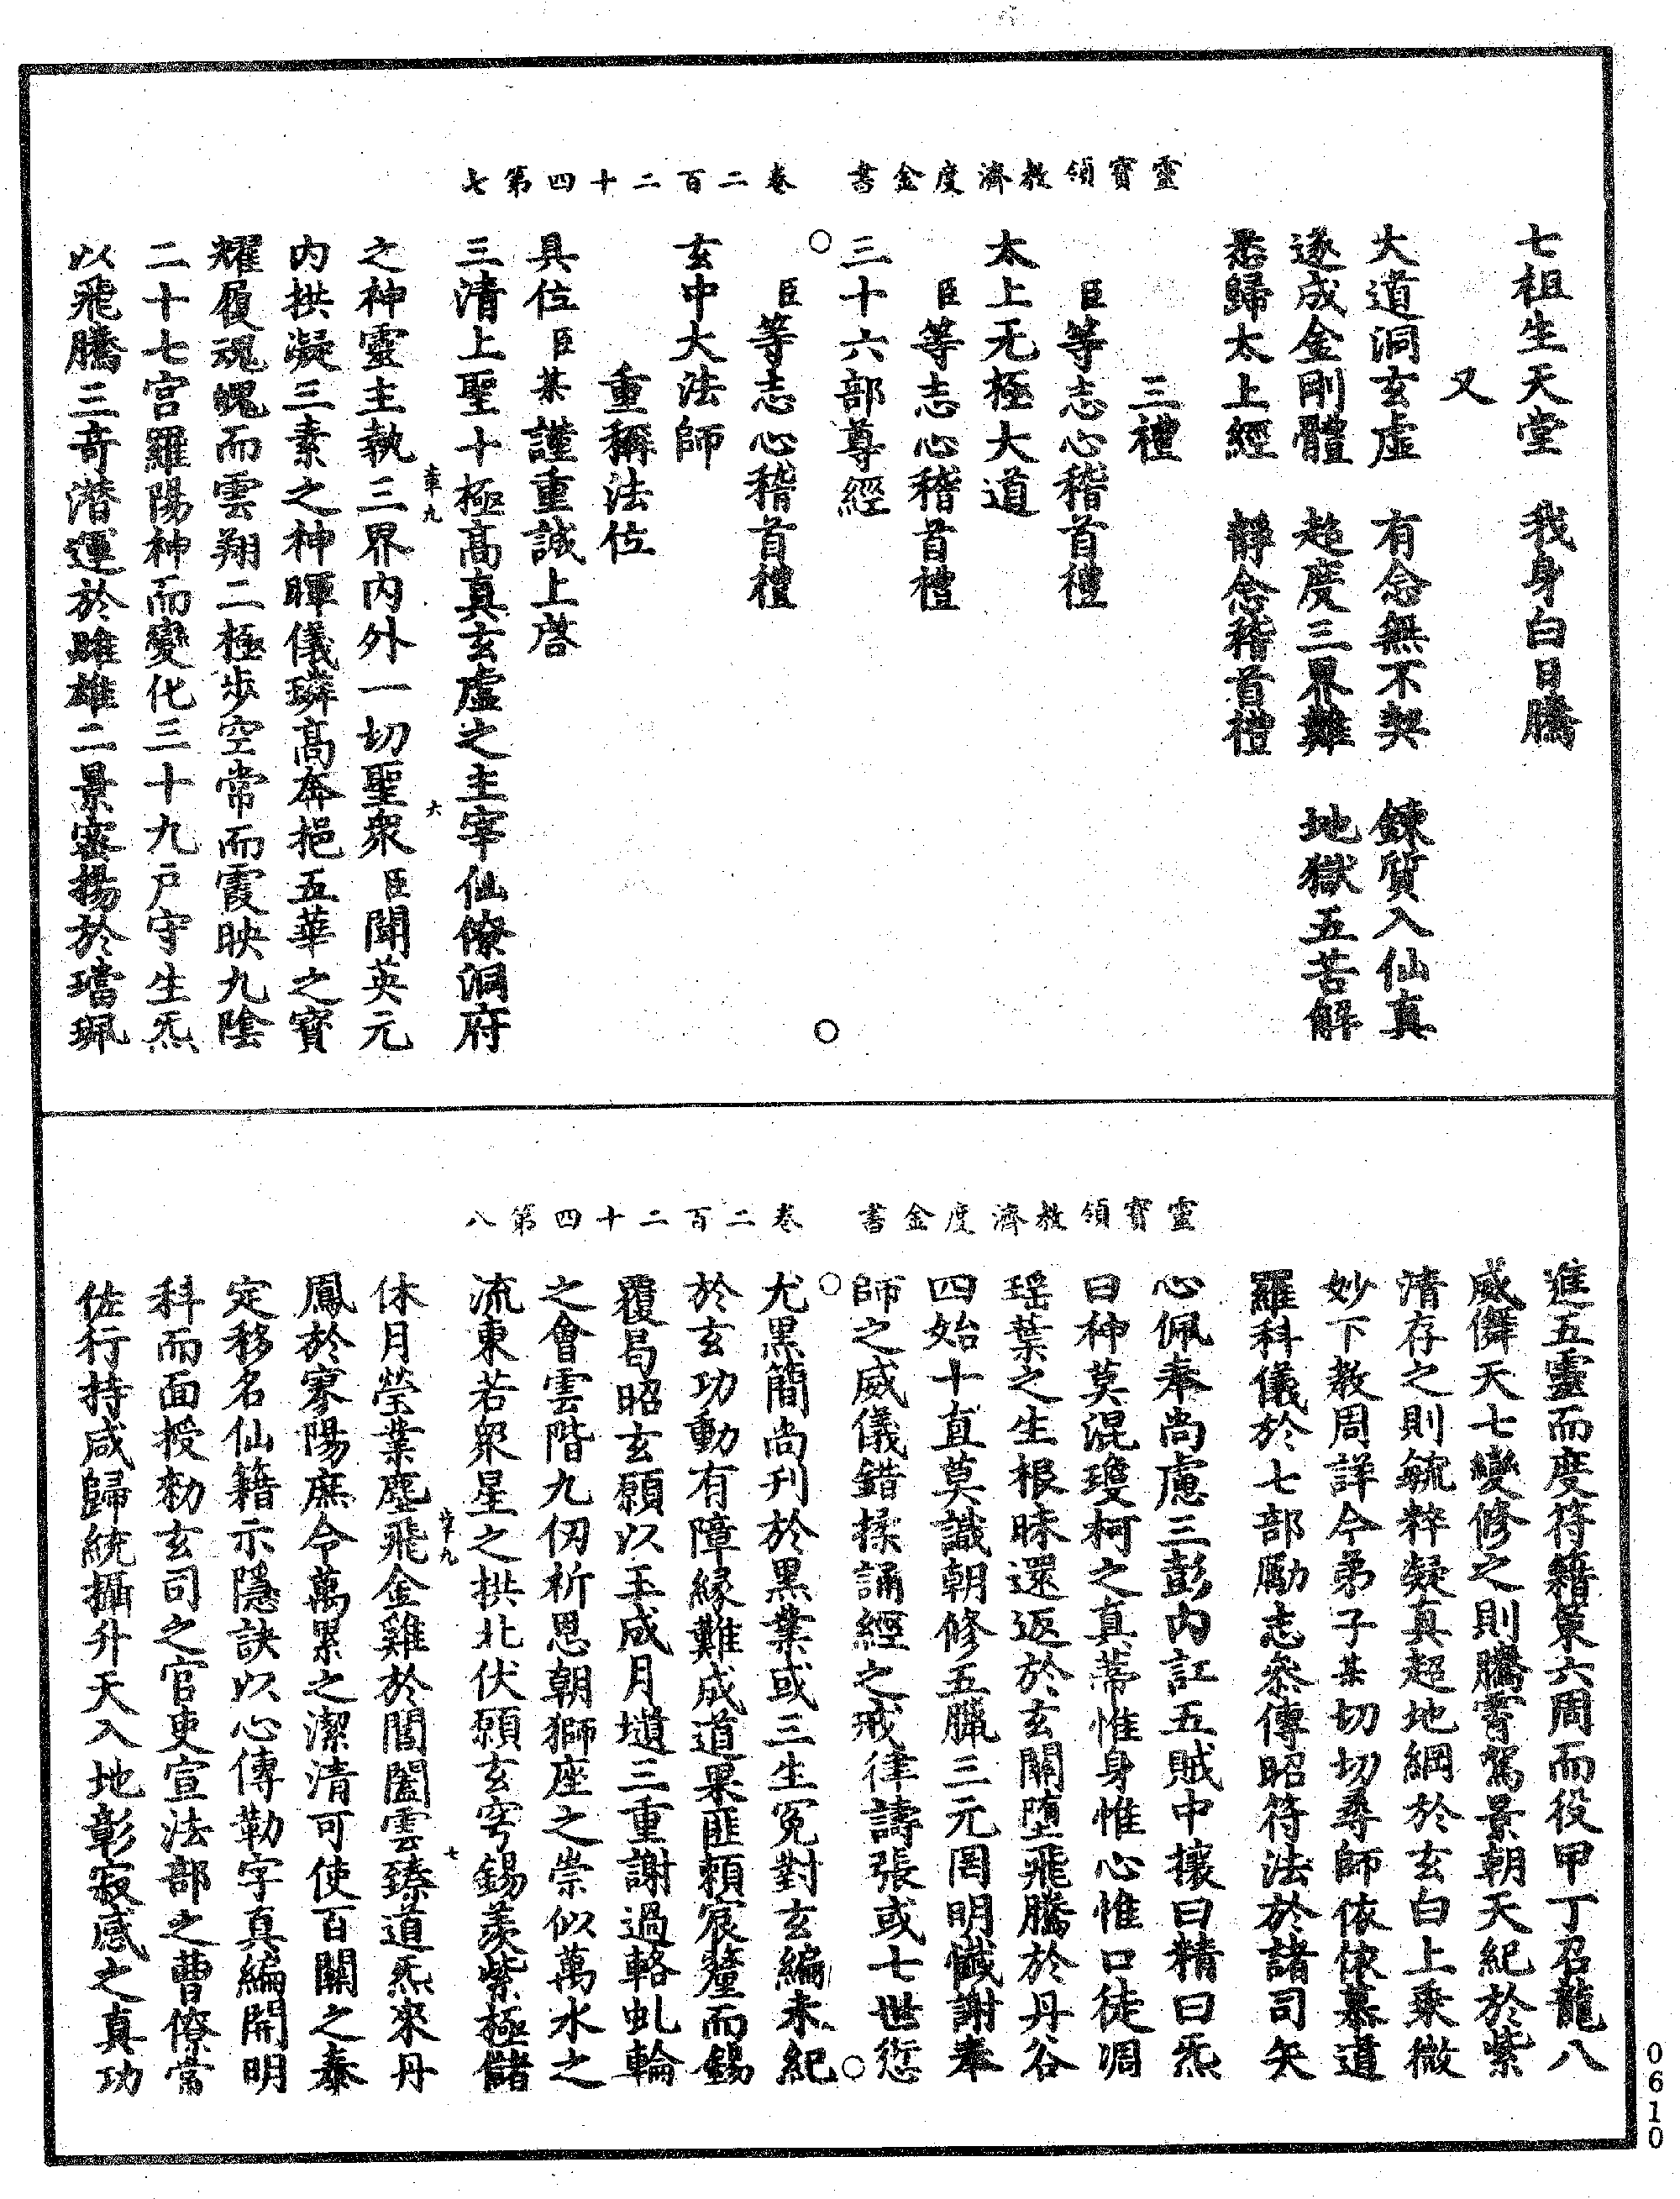 靈寶領教濟度金書　卷二百二十四第七
七祖生天堂　我身白日騰
又
大道洞玄虛　有念無不契　鍊質入仙真
遂成金剛體　超度三界難　地獄五苦解
悉歸太上經　靜念稽首禮
三禮
臣等志心稽首禮
太上无極大道
臣等志心稽首禮
三十六部尊經
臣等志心稽首禮
玄中大法師
重稱法位
具位臣某謹重誠上啓
三清上聖十極高真玄虛之主宰仙僚洞府
之神靈主執三界內外一切聖衆臣聞英元
內拱凝三素之神暉儀璘高奔挹五華之寶
耀履魂魄而雲翔二極步空常而霞映九陰
二十七宮羅陽神而變化三十九戶守生炁
以飛騰三奇潛運於雌雄二景密揚於璫珮
靈寶領教濟度金書　卷二百二十四第八
進五靈而度符籍策六周而役甲丁召龍八
威儛天七變修之則騰霄駕景朝天紀於紫
清存之則毓粹凝真超地綱於玄白上乘微
妙下教周詳今弟子某切切尋師依依慕道
羅科儀於七部勵志叅傳昭符法於諸司矢
心佩奉尚慮三彭內訌五賊中攘曰精曰炁
曰神莫混瓊柯之真蒂惟身惟心惟口徒凋
瑤葉之生根昧還返於玄關墮飛騰於丹谷
四始十直莫識朝修五臘三元罔明懺謝奉
師之威儀錯揉誦經之戒律譸張或七世愆
尤黑簡尚刋於黑業或三生寃對玄編未紀
於玄功動有障緣難成道果匪頼宸釐而錫
覆曷昭玄願以玉成月壝三重謝過輅虬輪
之會雲階九仞祈恩朝獅座之崇似萬水之
流東若衆星之拱北伏願玄穹錫羨紫極儲
休月瑩業塵飛金雞於閶闔雲臻道炁來丹
鳳於寥陽庶令萬累之潔清可使百關之泰
定移名仙籍示隱訣以心傳勒字真編開明
科而面授勑玄司之官吏宣法部之曹僚常
佐行持咸歸統攝升天入地彰寂感之真功
0610